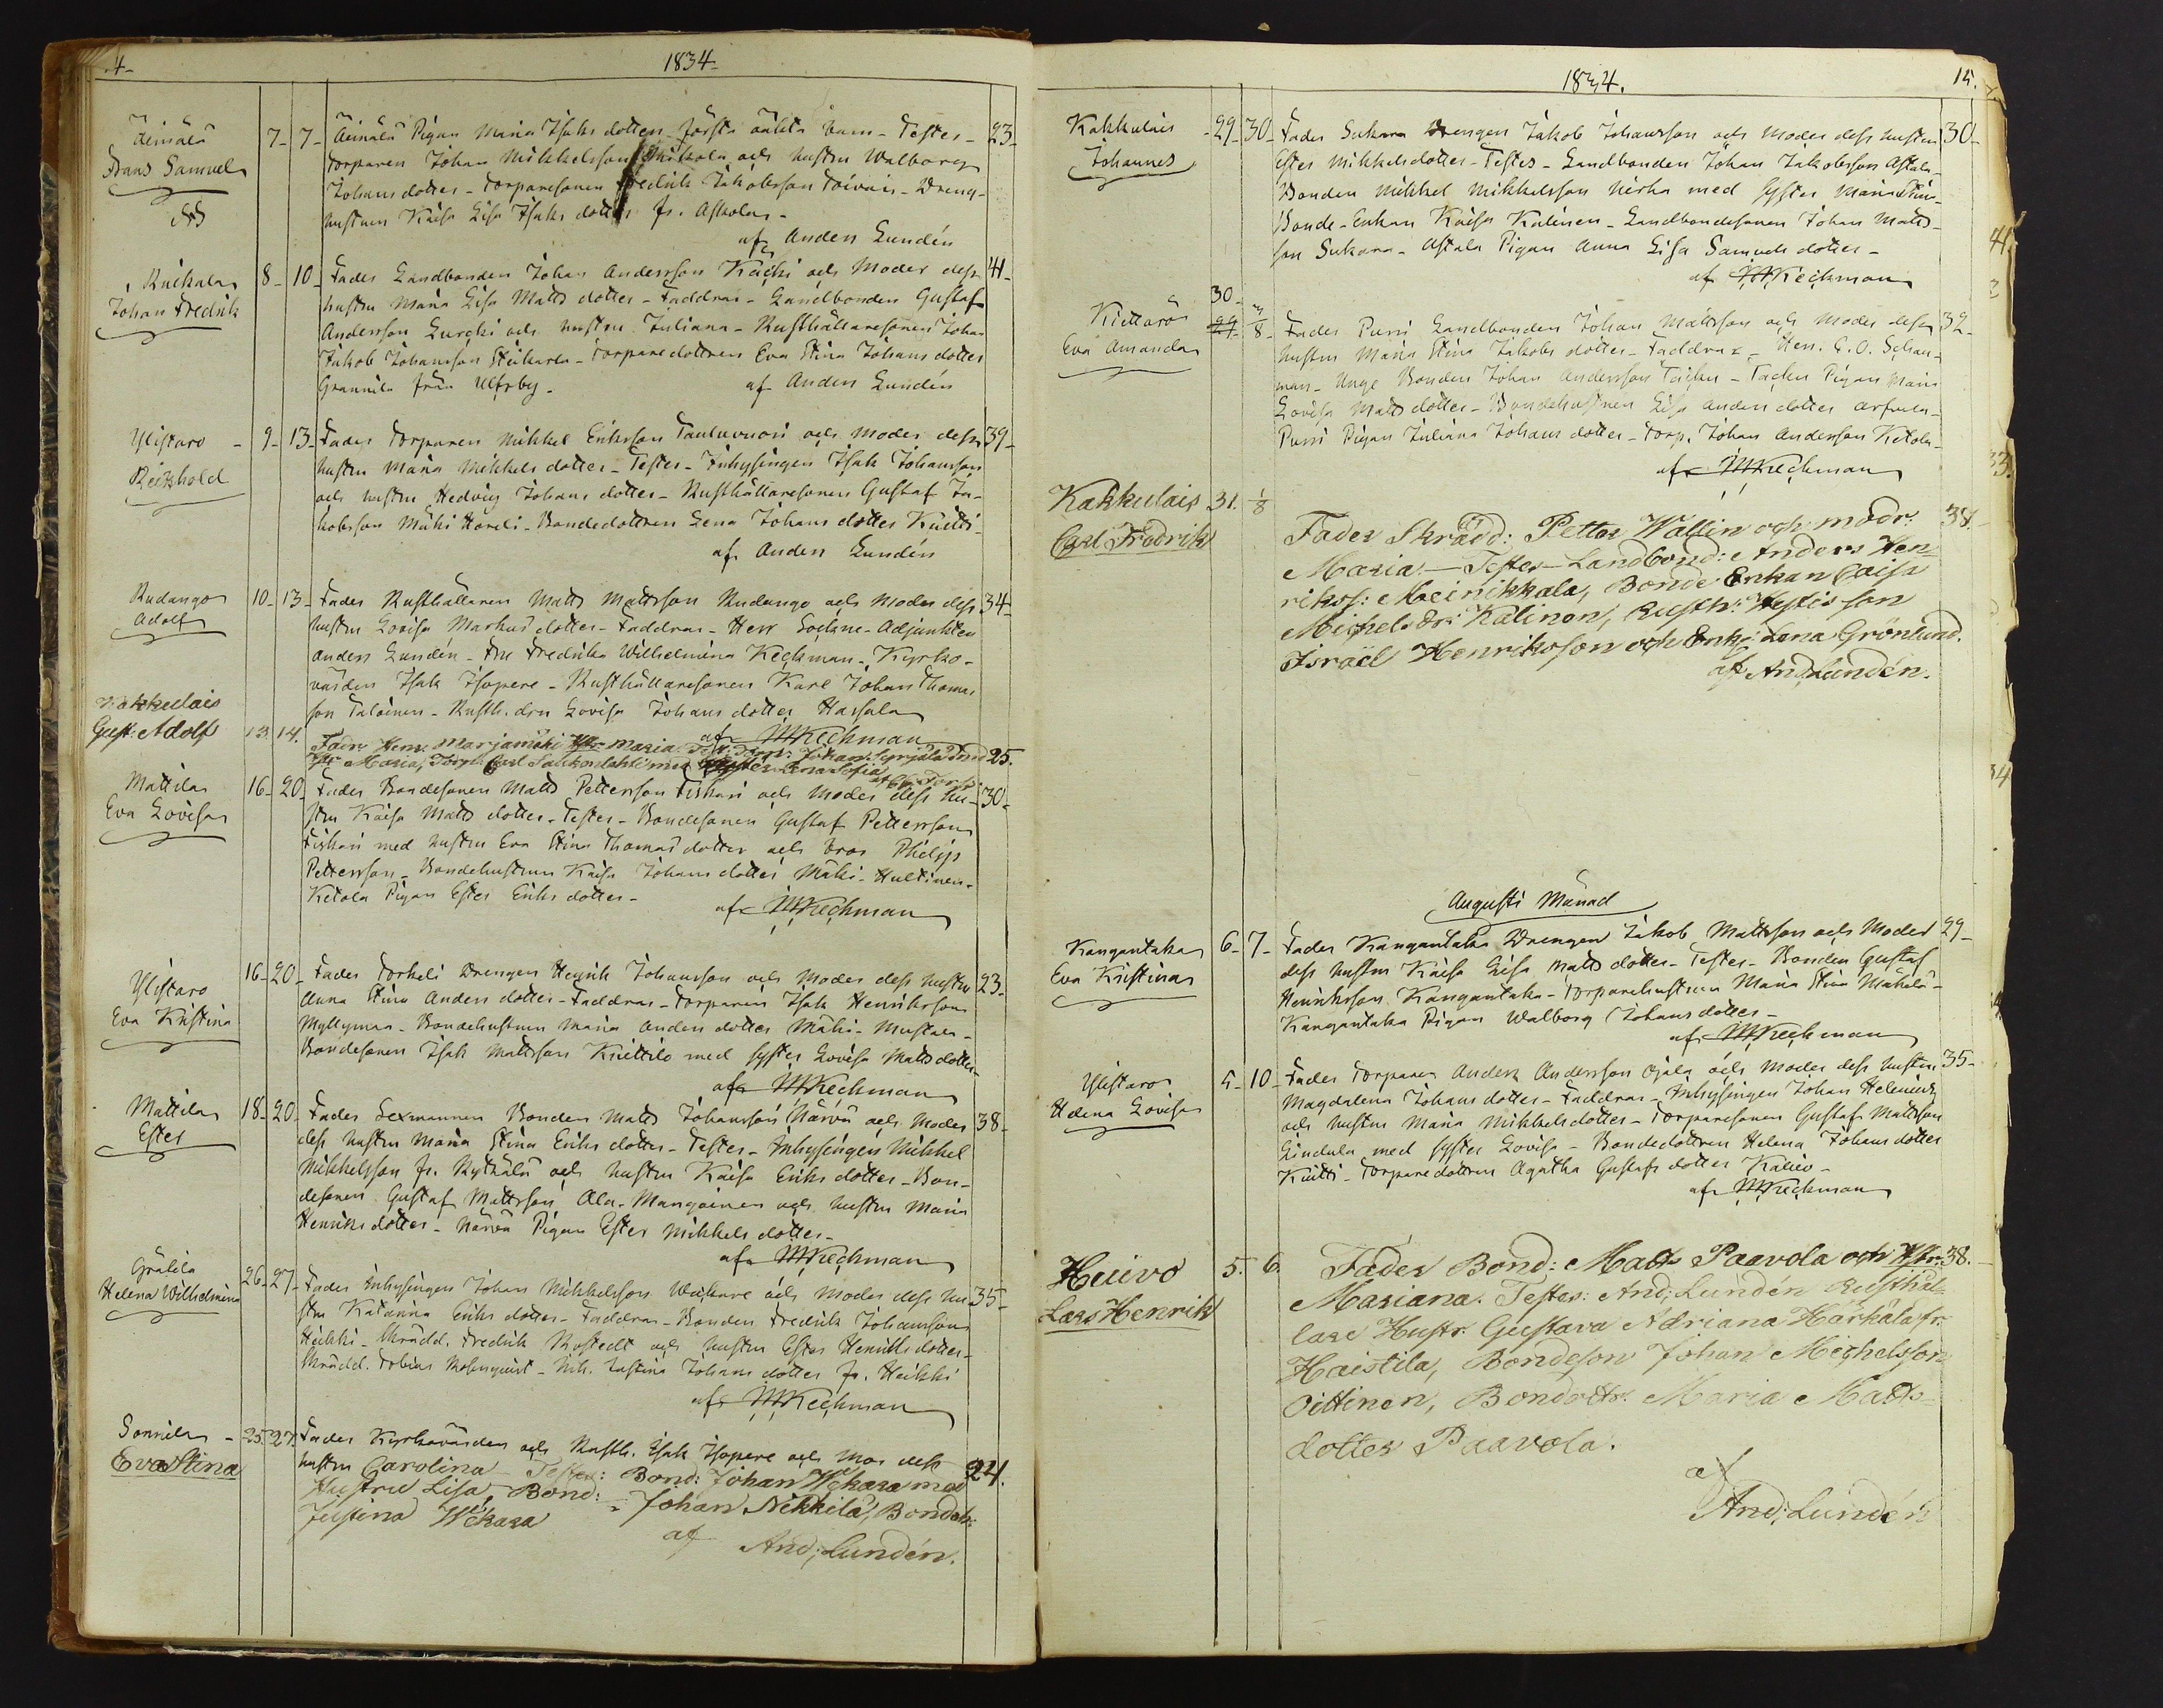 4-
1834-
Äimälä
Frans Samuel
7- 7- Äimälä Pigan Maria Isaks dotters första oäkta barn - Testes - 23-
Torparen Johan Mikkelsson Mikola och hustru Walborg
Johans dotter - Torparesonen Fredrik Jakobsson Toivais - Dreng-
hustrun Kaisa Lisa Isaks dotter fr. Askola -
af Anders Lundén
Kuikala
Johan Fredrik
8- 10- Fader Landbonden Johan Andersson Kaiki och Moder dess 41-
hustru Maria Lisa Matts dotter - Faddrar - Landbonden Gustaf
Andersson Lurcki och hustru Juliana - Rusthållaresonen Johan
Jakob Johansson Stükarla - Torparedottren Eva Stina Johans dotter
Grannila från Ulfsby -
af Anders Lundén
Ylistaro -
Reinhold
9- 13- Fader Torparen Mikkel Eriksson Tauluvuori och Moder dess 39-
hustru Maria Mikkels dotter - Testes - Inhysingen Isak Johansson
och hustru Hedvig Johans dotter - Rusthållaresonen Gustaf Ja-
kobsson Mäki Hordi - Bondedottren Lena Johans dotter Kuitti -
af Anders Lundén
Rudango
Adolf
10- 13- Fader Rusthållaren Matts Mattsson Rudango och Moder dess 34-
hustru Lovisa Markus dotter - Faddrar - Herr Sockne-Adjunkten
Anders Lundén - Fru Fredrika Wilhelmina Keckman - Kyrko-
värden Isak Isopere - Rusthållaresonen Karl Johan Thomas
son Taloinen - Rusth. drn Lovisa Johans dotter Hassala
af MKeckman
Kakkulais
Gust: Adolf
13. 14. Fadr Henr. Marjamäki Hr Maria Test: Torp: Johan Syrjälä med 25.
Hr Maria, Torp: Carl Salikonlahti med Syster Lena Sofia
Mattila
Eva Lovisa
16- 20- Fader Bondesonen Matts Pettersson Fiskari och Moder dess hu- 30-
stru Kaisa Matts dotter - Testes - Bondesonen Gustaf Pettersson
Fiskari med hustru Eva Stina Thomas dotter och bror Philip
Pettersson - Bondehustrun Kaisa Johans dotter Mäki-Hultinen -
Ketola Pigan Ester Eriks dotter -
af MKeckman
Ylistaro
Eva Kristina
16- 20- Fader Torkeli Drengen Henrik Johansson och Moder dess hustru 23-
Anna Stina Anders dotter - Faddrar - Torparen Isak Henriksson
Myllymaa - Bondehustrun Maria Anders dotter Mäki-Mustala -
Bondesonen Isak Mattsson Knuttilo med syster Lovisa Matts dotter -
af MKeckman
Mattila
Ester
18- 20- Fader Sexmannen Bonden Matts Johansson Närvä och Moder 38-
dess hustru Maria Stina Eriks dotter - Testes - Inhysingen Mikkel
Mikkelsson fr. Kyttälä och hustru Kaisa Eriks dotter - Bon-
desonen Gustaf Mattsson Ala-Mangoinen och hustru Maria
Henriks dotter - Närvä Pigan Ester Mikkels dotter -
af MKeckman
Gräila
Helena Wilhelmina
26- 27- Fader Inhysingen Johan Mikkelsson Waikare och Moder dess hu- 35-
stru Katarina Eriks dotter - Faddrar - Bonden Fredrik Johansson
Heikki - Skrädd. Fredrik Rostedt och hustru Ester Henriks dotter -
Skrädd. Tobias Rosenquist - Inh. Justina Johans dotter fr. Heikki
af MKeckman
Sonnila -
Eva Stina
25- 27- Fader Kyrkovärden och Rusth. Isak Isopere och Mor dess 24.
hustru Carolina - Testes: Bond: Johan Wekara med
Hustru Lisa, Bond: Johan Nikkilä, Bonded:
Justina Wekara
af And; Lundén.
1834.
15.
Kakkulais
Johannes
29- 30- Fader Sukara Drengen Jakob Johansson och Moder dess hustru 30-
Ester Mikkelsdotter - Testes - Landbonden Johan Jakobsson Astala -
Bonden Mikkel Mikkelsson Nirha med Syster Maria Stina -
Bonde-Enkan Kaisa Kalinen - Landbondesonen Johan Matts-
son Sukara - Astala Pigan Anna Lisa Samuels dotter -
af MKeckman
Kiettarö
Eva Amanda
30-
29- 4/8- Fader Purri Landbonden Johan Mattsson och Moder dess 32-
hustru Maria Stina Jakobs dotter - Faddrar - Herr. G. O. Schau-
man - Unge Bonden Johan Andersson Tacku - Tacku Pigan Maria
Lovisa Matts dotter - Bondehustrun Lisa Anders dotter Arfvela -
Purri Pigan Juliana Johans dotter - Torp. Johan Andersson Ketola -
af MKeckman
Kakkulais
Carl Fredrik
31. 1/8 Fader Skrädd: Petter Wallin och modr: 38.
Maria - Testes - Landbond: Anders Hen-
rikss: Meinikkala, Bonde Enkan Caisa
Michels dr: Kalinen, Rusth: Hestis son
Israël Henriksson och Enk: Lena Grönlund.
af And Lundén.
Augusti Månad
Kangantaka
Eva Kristina
6- 7- Fader Kangantaka Drengen Jakob Mattsson och Moder 29-
dess hustru Kaisa Lisa Matts dotter - Testes - Bonden Gustaf
Henriksson Kangantaka - Torparehustrun Maria Stina Mäkelä -
Kangantaka Pigan Walborg Johans dotter -
af MKeckman
Ylistaro
Helena Lovisa
5- 10- Fader Torparen Anders Andersson Ojala och Moder dess hustru 35-
Magdalena Johans dotter - Faddrar - Inhysingen Johan Helenius
och hustru Maria Mikkelsdotter - Torparesonen Gustaf Mattsson
Lindula med syster Lovisa - Bondedottren Helena Johans dotter
Kuitti - Torparedottren Agatha Gustafs dotter Kalliv -
af MKeckman
Huivo
Lars Henrik
5. 6. Fader Bond: Matts Paavola och Hstr. 38.
Mariana. Testes: And; Lundén Rusthål-
lare Hustr. Gustava Adriana Härkälä fr.
Haistila, Bondeson Johan Michelsson
Oittinen, Bonddottr: Maria Matts-
dotter Paavola.
af
And; Lundén